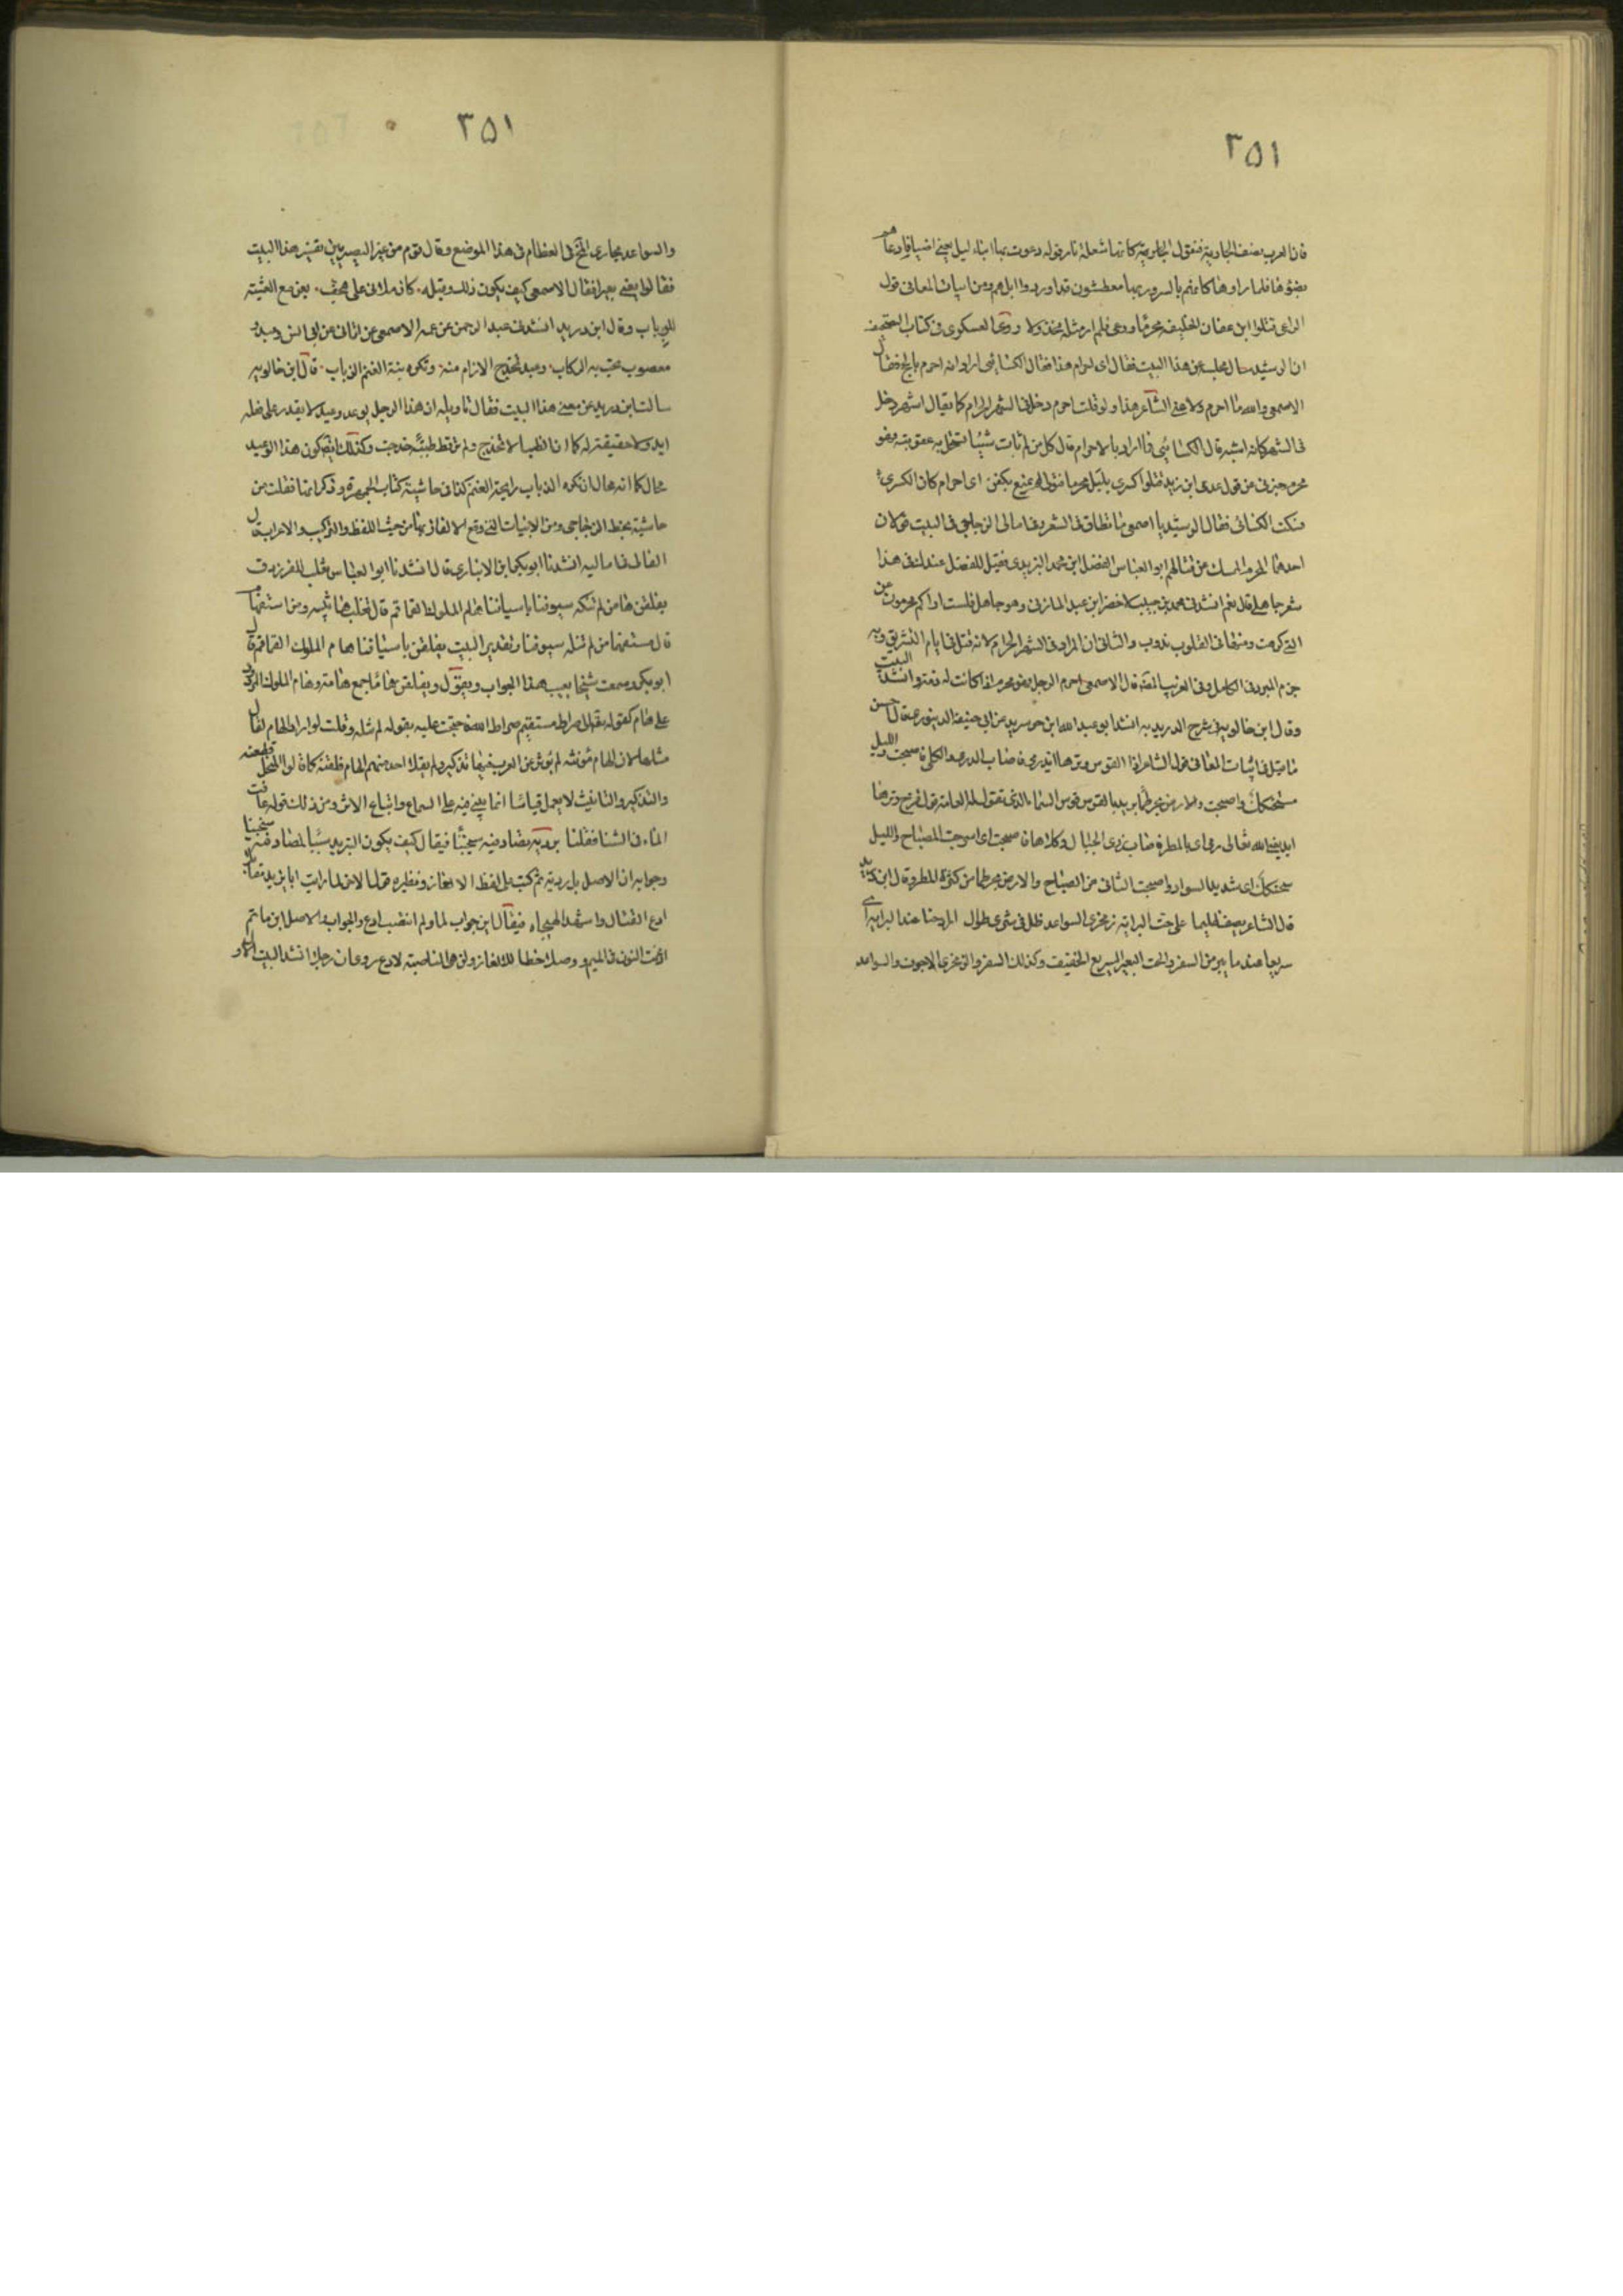 ٣٥١
فان العرب تصف الجارية فتقول الجارية كانها شعلة نار قوله دعوت بها ابناء ليل يعني اضيافا دعاهم
بضوئها فلما راوها كانهم بالسرور بها معطشون قد اوردوا ابلهم ومن ابيات المعاني قول
الراعي قتلوا ابن عفان الخليفة محرما ودعى فلم ار مثله مخذولا روى العسكري في كتاب التصحيف
ان الرشيد سال عن هذا البيت فقال اي احرام هذا فقال الكسائي اراد انه احرم بالحج فقال
الاصمعي والله ما احرم ولا عنى الشاعر هذا ولو قلت احرم دخل في الشهر الحرام كما يقال اشهر دخل
في الشهر كان اشبه قال الكسائي فما اراد بالاحرام قال كل من لم يات شيئا تستحل به عقوبته فهو
محرم خبرني عن قول عدي ابن زيد قتلوا كسرى بليل محرما فتولى لم يمتع بكفن اي احرام كان لكسرى
فسكت الكسائي فقال الرشيد يا اصمعي ما تطاق في الشعر وفي امالي الزجاجي في البيت قولان
احدهما المحرم الممسك عن قتالهم ابو العباس الفضل ابن محمد اليزيدي فقيل للفضل عندك في هذا
شعر جاهلي قال نعم انشدني محمد بن حبيب لاخضر ابن عبد المازني وهو جاهلي فلست اراكم تحرمون عن
التي كرهت ومنها في القلوب ندوب والثاني ان المراد في الشهر الحرام لانه قتل في ايام التشريق وبه
جزم المبرد في الكامل وفي الغريب المصنف قال الاصمعي احرم الرجل فهو محرم اذا كانت له ذمة وانشد البيت
وقال ابن خالويه في شرح الدريدية انشدنا ابو عبد الله ابن خوسريد عن ابي حنيفة الدينوري قال احسن
ما قيل في ابيات المعاني قول الشاعر اذا القوس وترها ايد رمى فاصاب الذرى والكلى فاصبحت والليل
مسحنكك واصبحت والارض بحر طما يريد بالقوس قوس السماء الذي تقول له العامة قوس قزح وترها
ايد يعني الله تعالى رمى اي بالمطر فاصاب ذرى الجبال وكلاها فاصبحت اي اسرجت المصباح والليل
مسحنكك اي شديد السواد واصبحت الثاني من الصباح والارض بحر طما من كثرة المطر وقال ابن دريد
قال الشاعر يصف ظليما على حت البراية زمخري السواعد ظل في شري طوال اراد حتا عند البراية اي
سريعا عند ما يبريه من السفر والحت البعير السريع الخفيف وكذلك السفر والزمخري الاجوف والسواعد
٣٥١
والسواعد مجاري المخ في العظام في هذا الموضع وقال قوم من غير البصريين تفسير هذا البيت
فقالوا يعني بعيرا فقال الاصمعي كيف يكون ذلك وقبله كان ملاءتي على هجف يعن مع العشية
للرياب وقال ابن دريد انشدني عبد الرحمن عن عمه الاصمعي
معصوب تخب به الركاب وعيد تخدج الارام منه وتكره بنة الغنم الذياب قال ابن خالويه
سالت ابن دريد عن معنى هذا البيت فقال تاويله ان هذا الرجل يوعد وعيدا لا يقدر على فعله
ابدا ولا حقيقة له كما ان الظباء لا تخدج ولم تر قط ظبية خدجت وكذلك ايضا يكون هذا الوعيد
محال كما انه محال ان تكره الذياب رايحة الغنم كذا في حاشية كتاب الجمهرة وذكر انها نقلت من
حاشية بخط الزجاجي ومن الابيات التي وقع الالغاز بها من حيث اللفظ والتركيب والاعراب قال
القالي في اماليه انشدنا ابو بكر ابن الانباري قال انشدنا ابو العباس ثعلب للفرزدق
يفلقن ها من لم تنله سيوفنا باسيافنا هام الملوك القماقم قال ثعلب ها تنبيه ومن استفهام
قال مستفهما من لم تنله سيوفنا وتقدير البيت يفلقن باسيافنا هام الملوك القماقم قال
ابو بكر وسمعت شيخا يعيب هذا الجواب ويقول يفلقن هاما جمع هامة وهام الملوك مردود
على هام كقوله تعالى الى صراط مستقيم صراط الله فحججت عليه بقوله لم تنله وقلت لو اراد الهام لقال
تنلها لان الهام مؤنثة لم يؤثر عن العرب فيها تذكير ولم يقل احد منهم الهام فلقته كما قالوا النخل قطعته
والتذكير والتانيث لا يعمل قياسا انما يبنى فيه على السماع واتباع الاثر ومن ذلك قوله عافت
الماء في الشتا فقلنا برديه تصادفيه سخينا فيقال كيف يكون التبريد سببا لمصادفته سخينا
وجوابه ان الاصل بل رديه ثم كتب على لفظ الالغاز ونظيره قول الاخر لما رايت ابا يزيد مقاتلا
ادع القتال واشهد الهيجاء فيقال اين جواب لما وبم انتصب ادع والجواب الاصل لن ما ثم
ادغمت النون في الميم ووصلا خطا للالغاز ولن هي الناصبة لادع